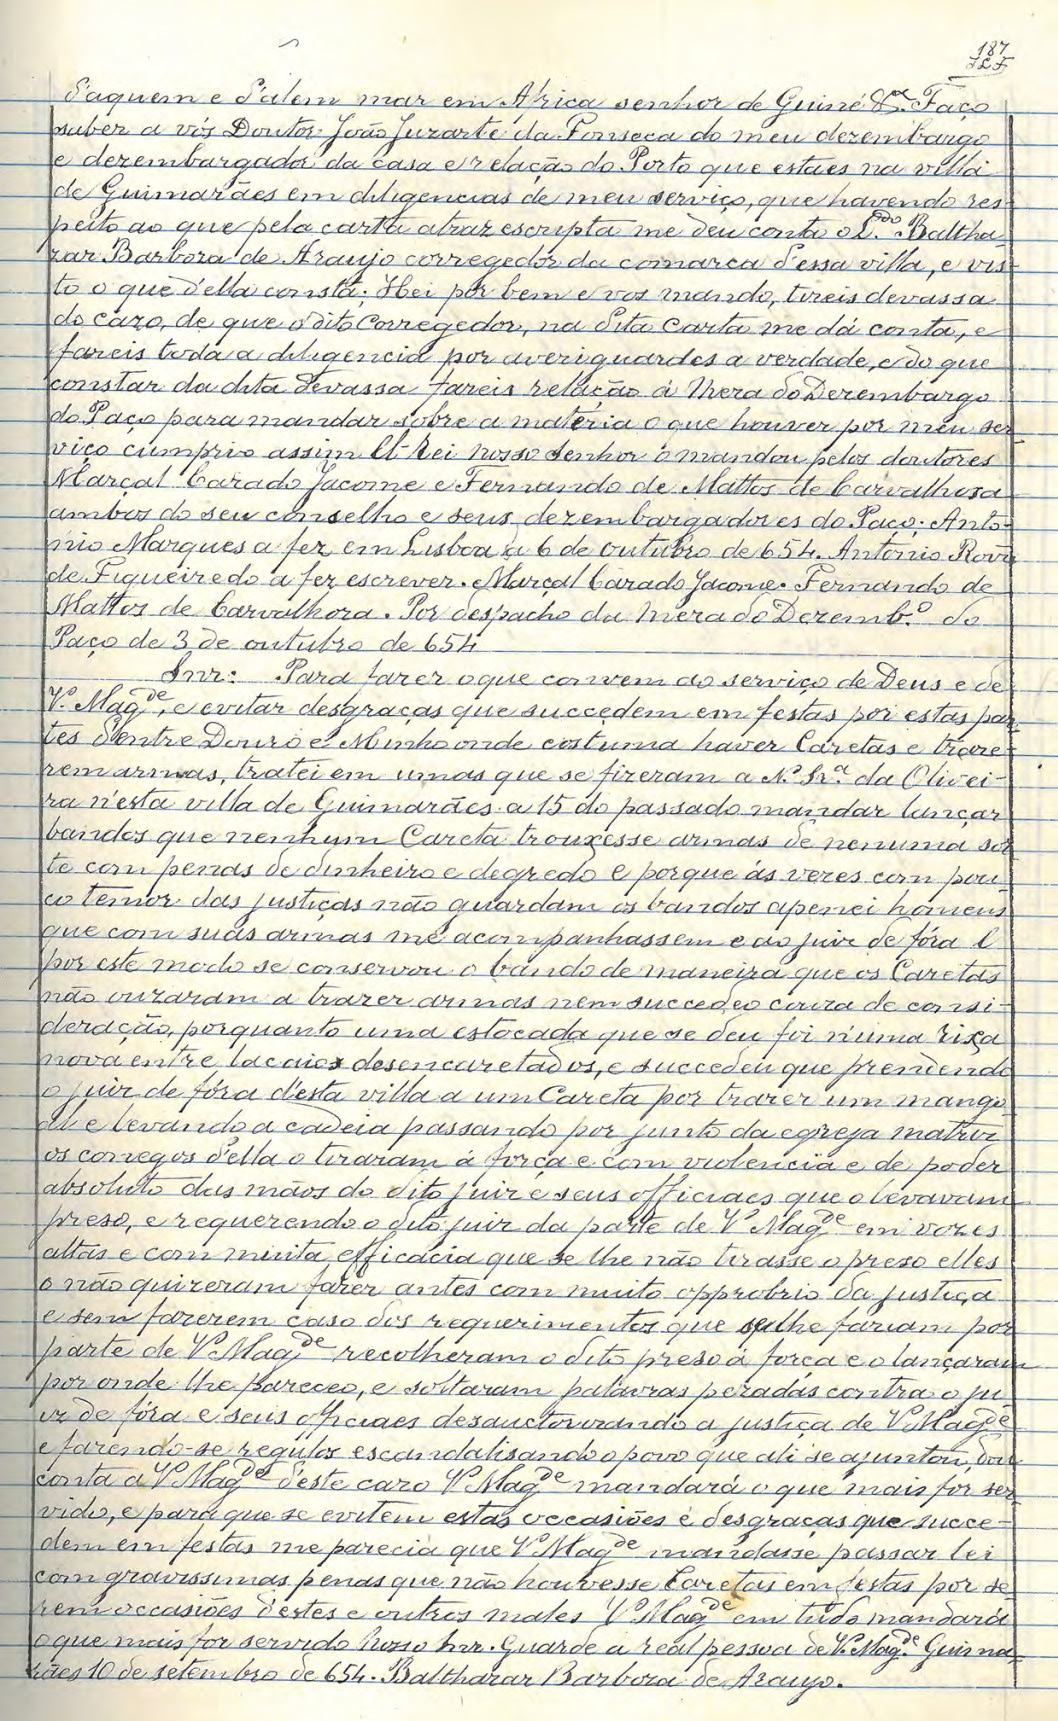 187
J.L.F.
d'aquem e d'alem mar em Africa senhor de Guiné &.ca Faço
saber a vós Doutor João Jurarte da Fonseca do meu dezembargo
e dezembargador da casa e relação do Porto que estaes na villa
de Guimarães em diligencias de meu serviço, que havendo res-
peito ao que pela carta atraz escripta me deu conta o L.do Baltha-
zar Barboza de Araujo corregedor da comarca d'essa villa, e vis-
to o que d'ella consta: Hei por bem e vos mando, tireis devassa
do cazo, de que o dito Corregedor, na dita Carta me dá conta, e
fareis toda a diligencia por averiguardes a verdade, e do que
constar da dita devassa fareis relação á Meza do Dezembargo
do Paço para mandar sobre a materia o que houver por meu ser-
viço cumprio assim El-Rei nosso senhor o mandou pelos doutores
Marçal Cazado Jacome e Fernando de Mattos de Carvalhosa
ambos do seu conselho e seus dezembargadores do Paço: Anto-
nio Marques a fez em Lisboa a 6 de outubro de 654. Antonio Rõiz
de Figueiredo a fez escrever. Marçal Cazado Jacome. Fernando de
Mattos de Carvalhoza. Por despacho da Meza do Dezemb.o do
Paço de 3 de outubro de 654
Snr: Para fazer o que convem ao serviço de Deus e de
V.a Mag.de, e evitar desgraças que succedem em festas por estas par-
tes d'entre Douro e Minho onde costuma haver Caretas e traze-
rem armas, tratei em umas que se fizeram a N.a Sr.a da Olivei-
ra n'esta villa de Guimarães a 15 do passado mandar lançar
bandos que nenhum Careta trouxesse armas de nenuma sor-
te com penas de dinheiro e degredo E porque ás vezes com pou-
co temor das justiças não guardam os bandos apenei homens
que com suas armas me acompanhassem e ao juiz de fóra E
por este modo se conservou o bando de maneira que os Caretas
não ouzaram a trazer armas nem succedeo couza de consi-
deração, porquanto uma estocada que se deu foi n'uma rixa
nova entre lacaios desencaretados, e succedeu que prendendo
o juiz de fóra d'esta villa a um Careta por trazer um mango-
al e levando a cadeia passando por junto da egreja matriz
os conegos d'ella o tiraram á força e com violencia e de poder
absoluto das mãos do dito juiz e seus officiaes que o levavam
preso, e requerendo o dito juiz da parte de V.a Mag.de em vozes
altas e com muita efficacia que se lhe não tirasse o preso elles
o não quizeram fazer antes com muito opprobrio da justiça
e sem fazerem caso dos requerimentos que se lhe faziam por
parte de V.a Mag.de recolheram o dito preso á força e o lançaram
por onde lhe pareceo, e soltaram palavras pezadas contra o ju-
iz de fóra e seus officiaes desauctorizando a justiça de V.a Mag.de
e fazendo-se regulos escandalisando o povo que ali se ajuntou, dou
conta a V.a Mag.de d'este cazo V.a Mag.de mandará o que mais fôr ser-
vido, e para que se evitem estas occasiões e desgraças que succe-
dem em festas me parecia que V.a Mag.de mandasse passar lei
com gravissimas penas que não houvesse Caretas em festas por se-
rem occasiões d'estes e outros males V.a Mag.de em tudo mandará
o que mais for servido Nosso Snr. Guarde a real pessoa de V.a Mag.de Guima-
rães 10 de setembro de 654. Balthazar Barboza de Araujo.